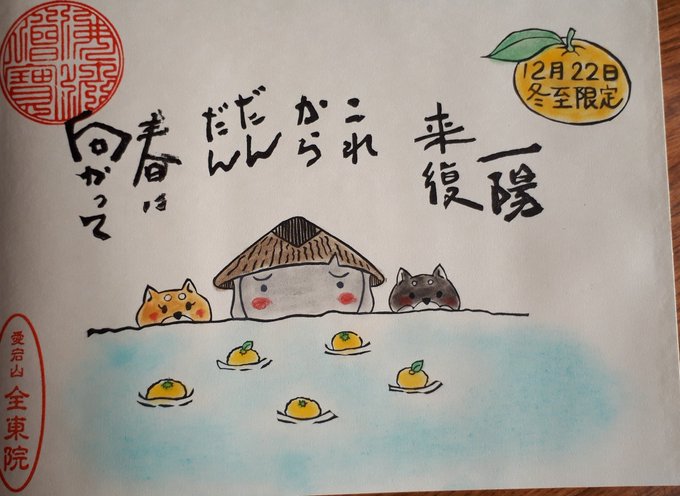 12月22日
冬至限定
一陽
来復
これ
から
だん
だん
春に
向かって
佛法
僧寶
愛宕山 全東院